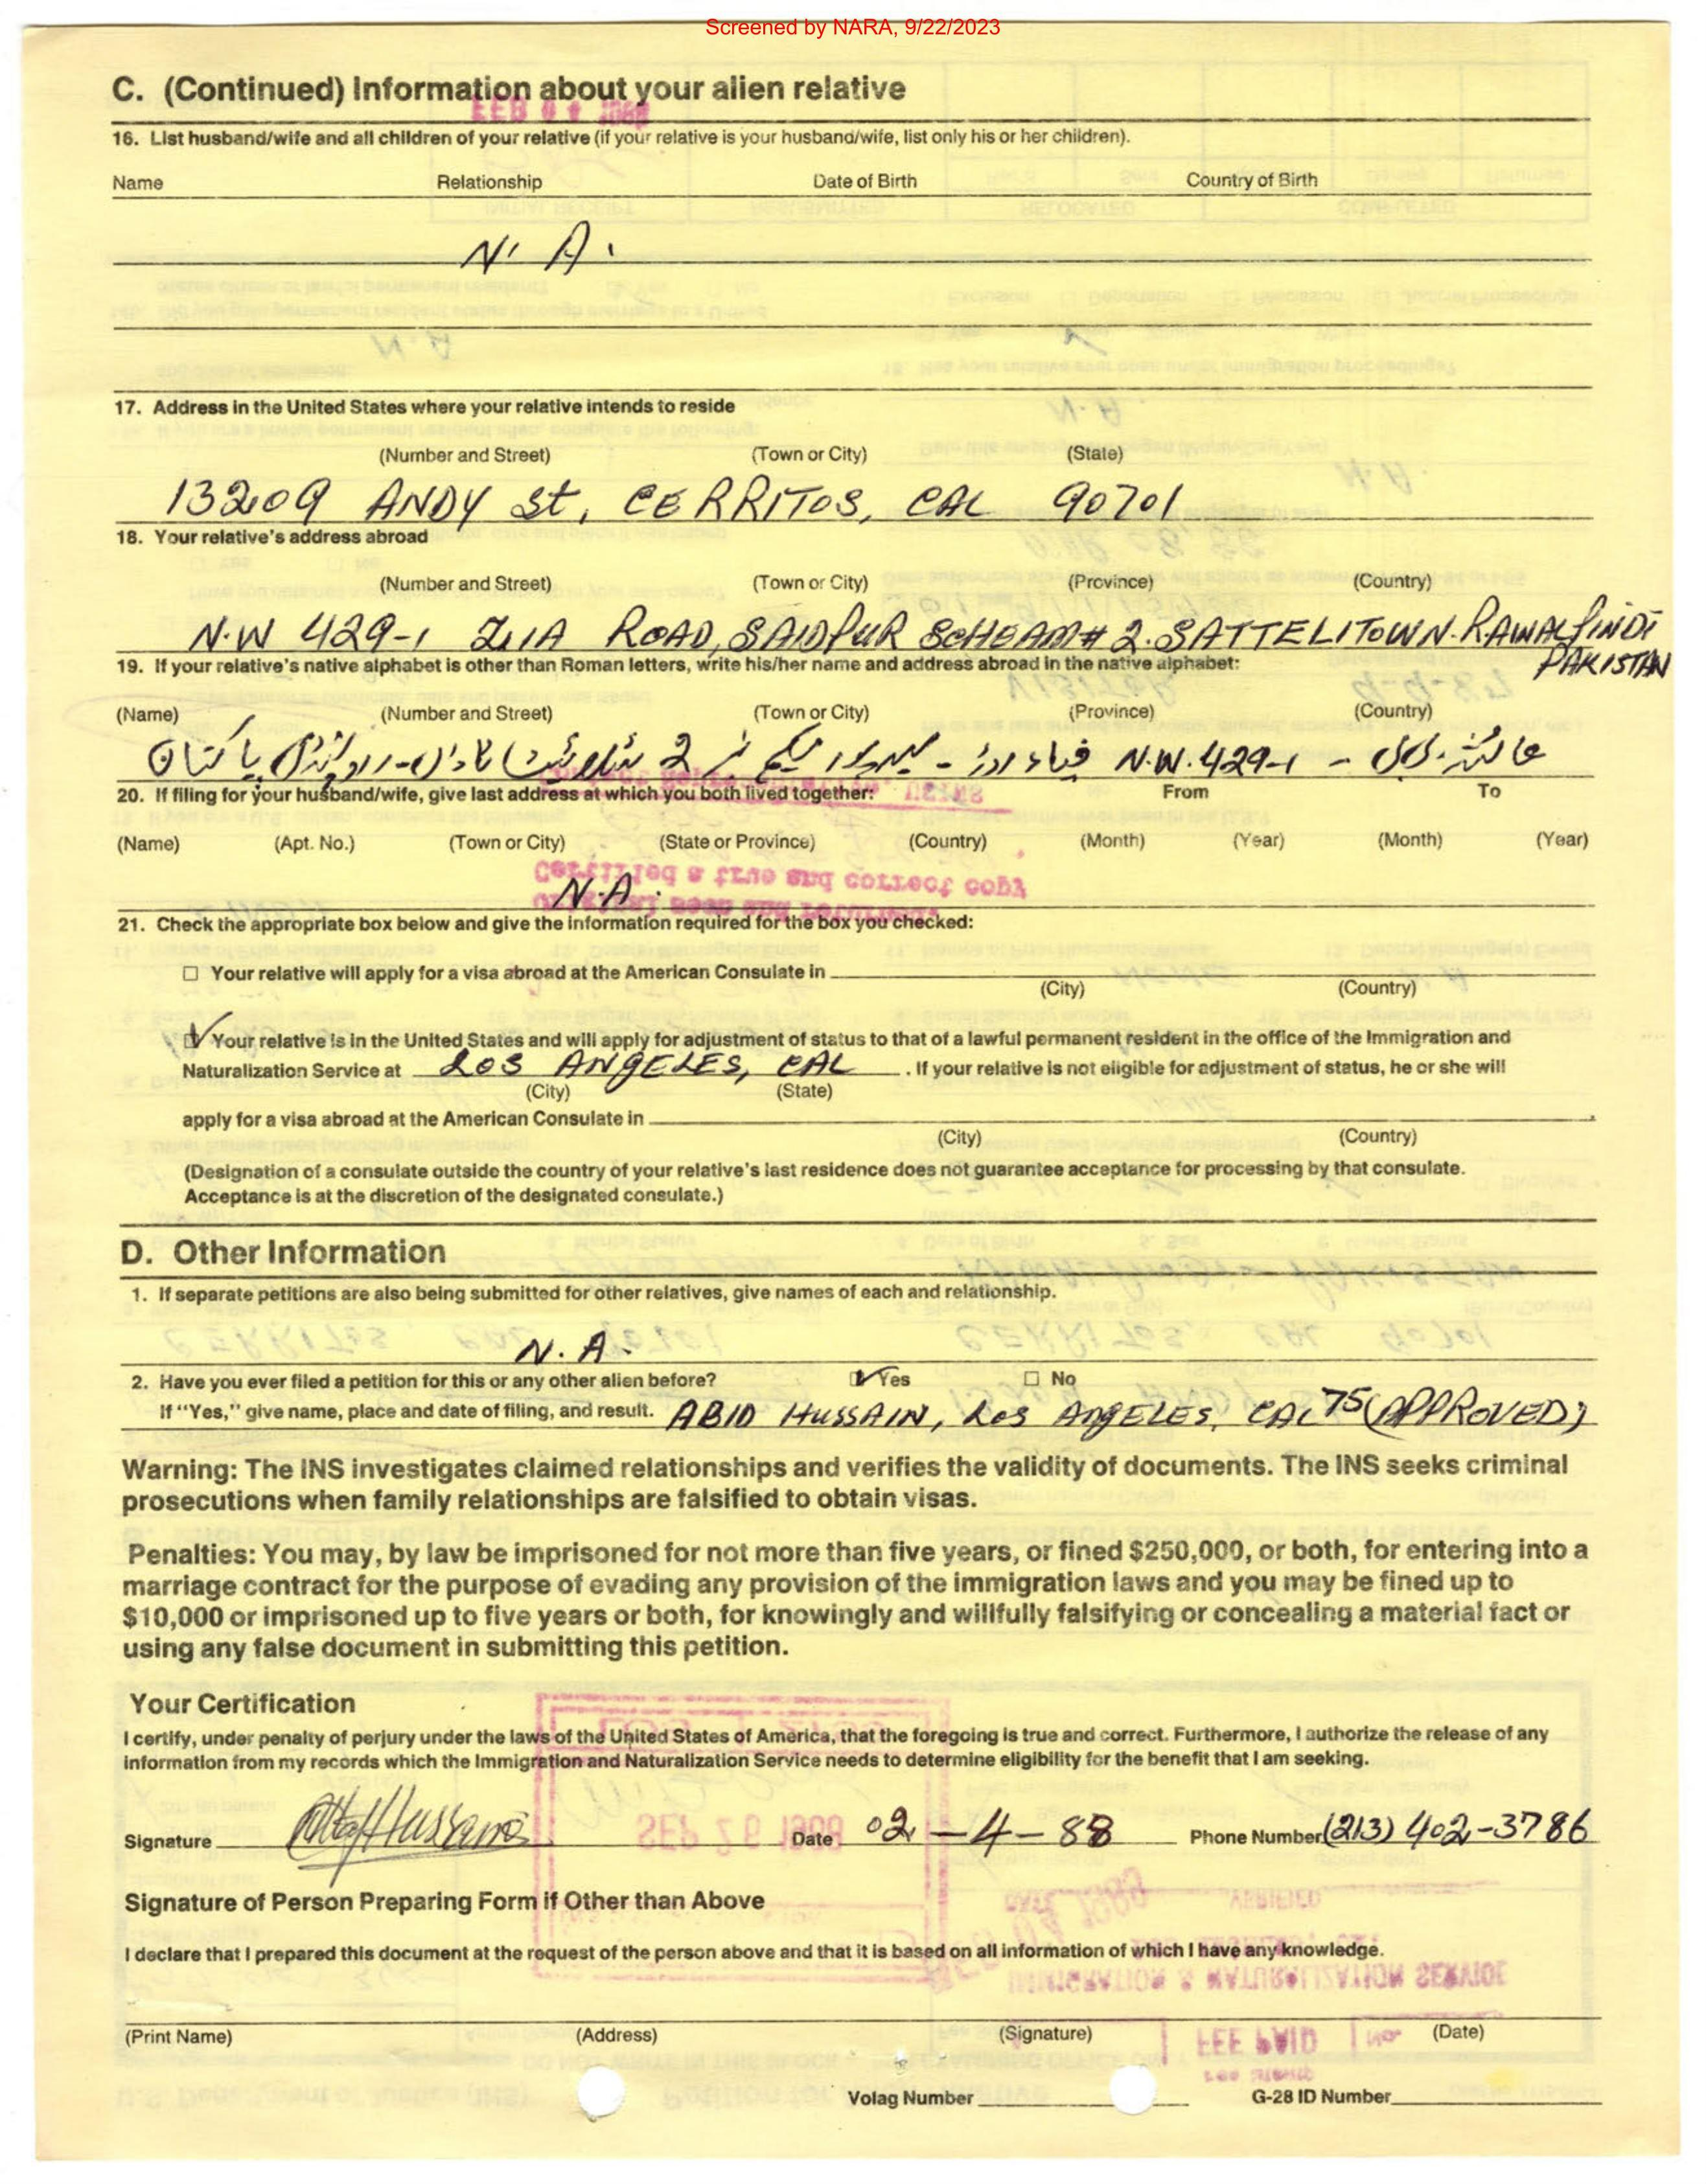 Screened by NARA, 9/22/2023
C. (Continued) Information about your alien relative
16. List husband/wife and all children of your relative (if your relative is your husband/wife, list only his or her children).
Name Relationship Date of Birth Country of Birth
N. A.
17. Address in the United States where your relative intends to reside
(Number and Street) (Town or City) (State)
13209 ANDY St, CERRITOS, CAL 90701
18. Your relative's address abroad
(Number and Street) (Town or City) (Province) (Country)
N.W 429-1 ZIIA ROAD, SAIDPUR SCHEAM # 2. SATTELITOWN. RAWALPINDI
PAKISTAN
19. If your relative's native alphabet is other than Roman letters, write his/her name and address abroad in the native alphabet:
(Name) (Number and Street) (Town or City) (Province) (Country)
N.W. 429-1 ضیاء روڈ - سیدپور سکیم نمبر 2 سٹیلائیٹ ٹاؤن - راولپنڈی پاکستان
20. If filing for your husband/wife, give last address at which you both lived together: From To
(Name) (Apt. No.) (Town or City) (State or Province) (Country) (Month) (Year) (Month) (Year)
N.A.
21. Check the appropriate box below and give the information required for the box you checked:
☐ Your relative will apply for a visa abroad at the American Consulate in
(City) (Country)
☑ Your relative is in the United States and will apply for adjustment of status to that of a lawful permanent resident in the office of the Immigration and
Naturalization Service at LOS ANGELES, CAL . If your relative is not eligible for adjustment of status, he or she will
(City) (State)
apply for a visa abroad at the American Consulate in .
(City) (Country)
(Designation of a consulate outside the country of your relative's last residence does not guarantee acceptance for processing by that consulate.
Acceptance is at the discretion of the designated consulate.)
D. Other Information
1. If separate petitions are also being submitted for other relatives, give names of each and relationship.
N. A.
2. Have you ever filed a petition for this or any other alien before? ☑ Yes ☐ No
If "Yes," give name, place and date of filing, and result. ABID HUSSAIN, LOS ANGELES, CAL 75 (APPROVED)
Warning: The INS investigates claimed relationships and verifies the validity of documents. The INS seeks criminal
prosecutions when family relationships are falsified to obtain visas.
Penalties: You may, by law be imprisoned for not more than five years, or fined $250,000, or both, for entering into a
marriage contract for the purpose of evading any provision of the immigration laws and you may be fined up to
$10,000 or imprisoned up to five years or both, for knowingly and willfully falsifying or concealing a material fact or
using any false document in submitting this petition.
Your Certification
I certify, under penalty of perjury under the laws of the United States of America, that the foregoing is true and correct. Furthermore, I authorize the release of any
information from my records which the Immigration and Naturalization Service needs to determine eligibility for the benefit that I am seeking.
Signature Hussain Date 02-4-88 Phone Number (213) 402-3786
Signature of Person Preparing Form if Other than Above
I declare that I prepared this document at the request of the person above and that it is based on all information of which I have any knowledge.
(Print Name) (Address) (Signature) (Date)
Volag Number G-28 ID Number